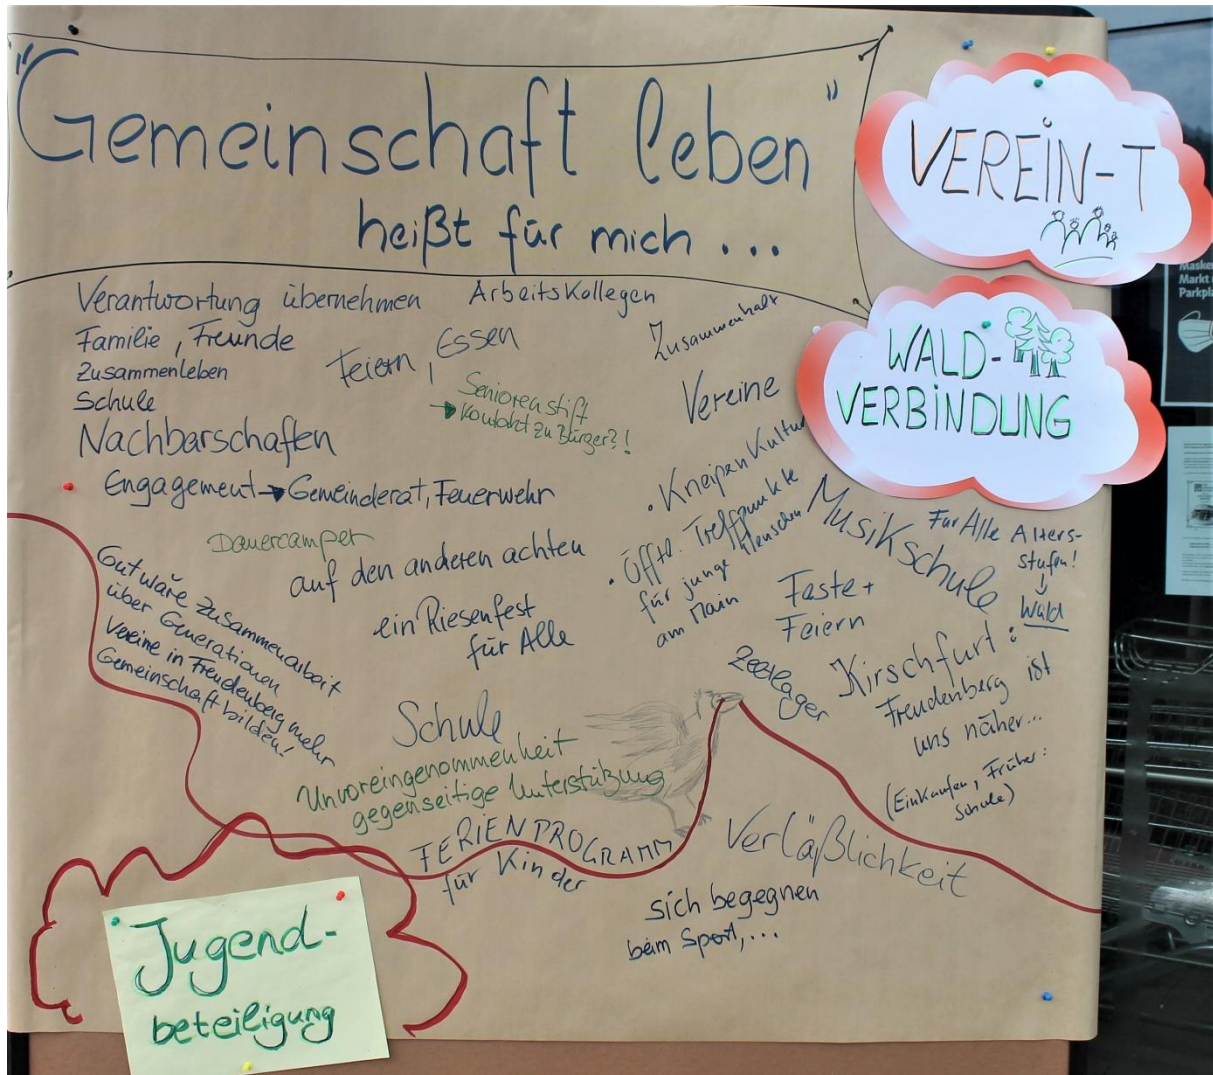 "Gemeinschaft leben"
heißt für mich ...
VEREIN-T
WALD-
VERBINDUNG
Verantwortung übernehmen
Arbeitskollegen
Familie, Freunde
Zusammenleben
Schule
Nachbarschaften
Feiern, Essen
Zusammenhalt
Seniorenstift
→ Kontakt zu Bürger?!
Vereine
Engagement → Gemeinderat, Feuerwehr
Dauercamper
auf den anderen achten
ein Riesenfest
für Alle
• Kneipen Kultur
• Öfftl. Treffpunkte
für junge Menschen
am Main
Musikschule
Für Alle Alters-
stufen!
↓
Wald
Feste +
Feiern
Zeltlager
Kirschfurt:
Freudenberg ist
uns näher...
(Einkaufen, Früher:
Schule)
Gut wäre Zusammenarbeit
über Generationen
Vereine in Freudenberg mehr
Gemeinschaft bilden!
Schule
Unvoreingenommenheit
gegenseitige Unterstützung
FERIENPROGRAMM
für Kinder
Verläßlichkeit
sich begegnen
beim Sport, ...
Jugend-
beteiligung
Masken
Markt
Parkpla